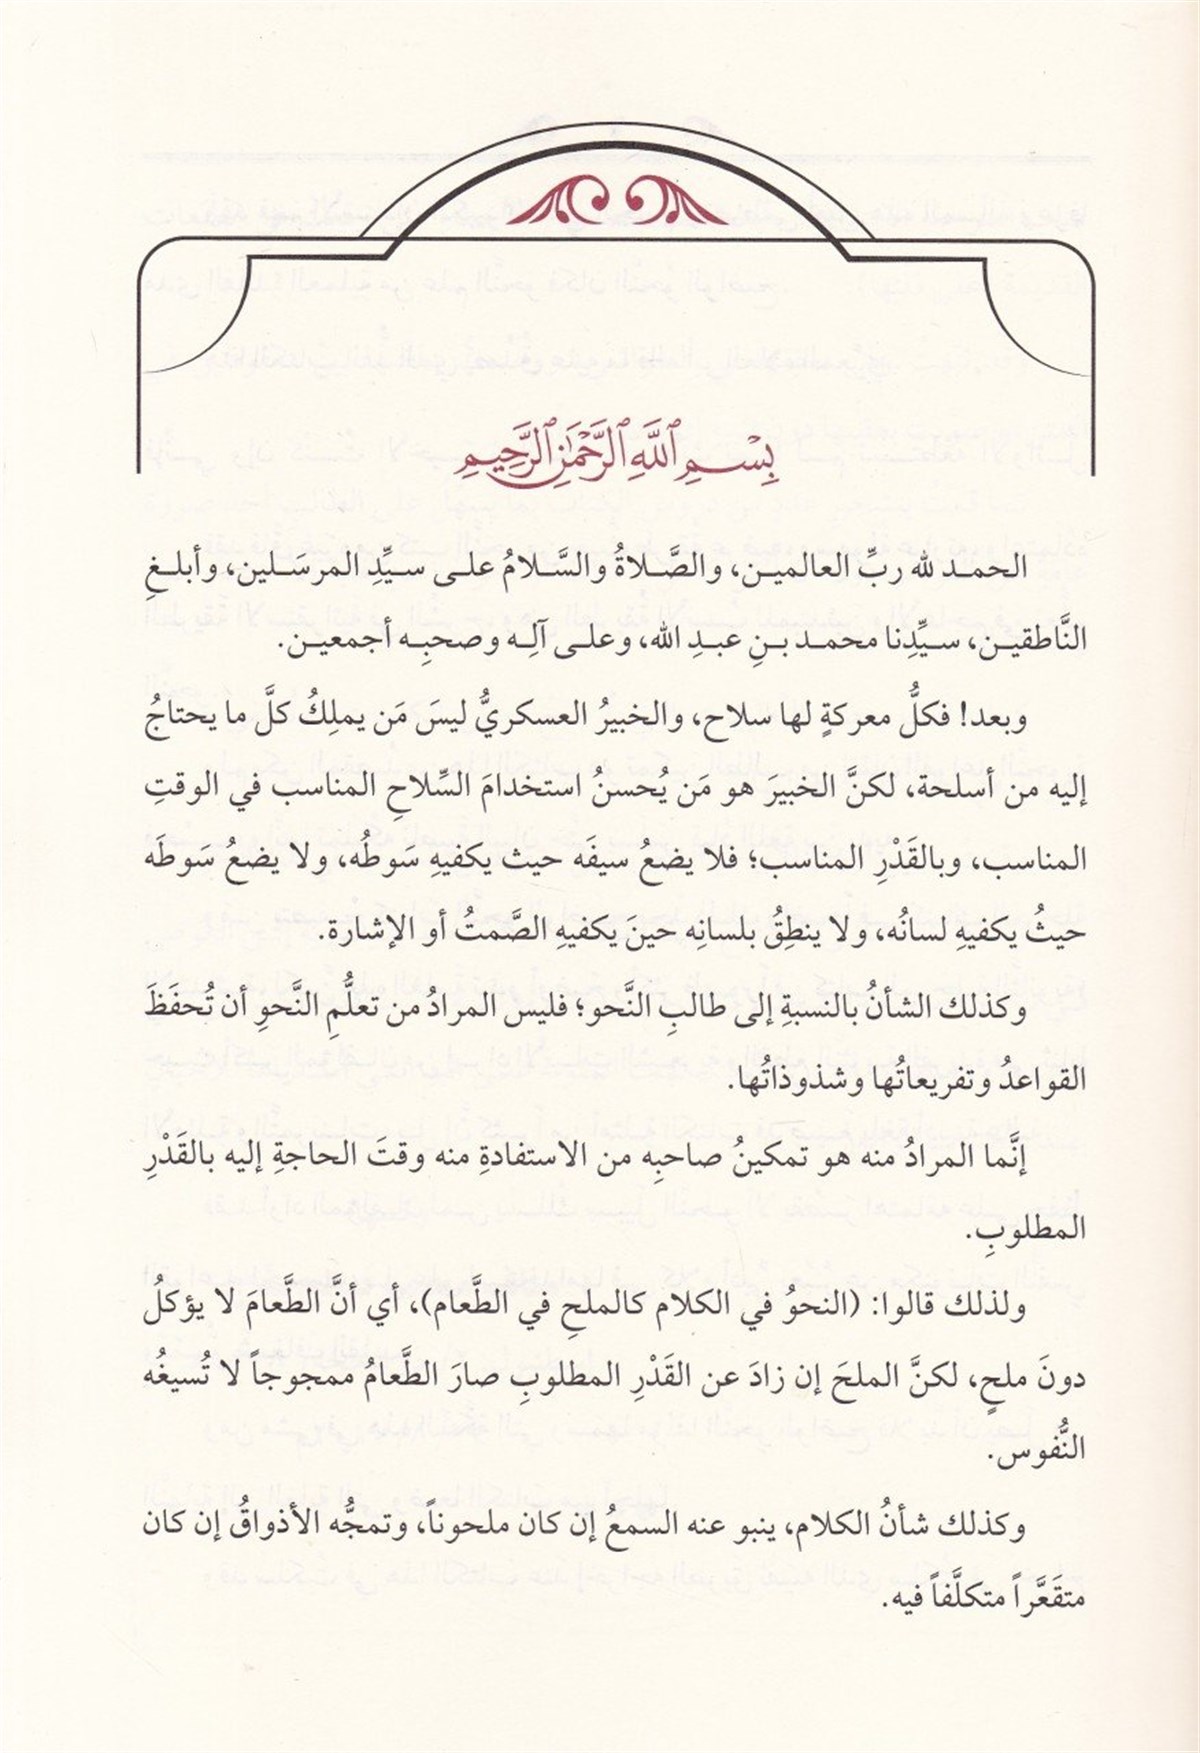 بِسْمِ ٱللَّهِ ٱلرَّحْمَٰنِ ٱلرَّحِيمِ
الحمد لله ربِّ العالمين، والصَّلاةُ والسَّلامُ على سيِّدِ المرسَلين، وأبلغِ
النَّاطقين، سيِّدِنا محمد بنِ عبدِ الله، وعلى آلِه وصحبِه أجمعين.
وبعد! فكلُّ معركةٍ لها سلاح، والخبيرُ العسكريُّ ليسَ مَن يملِكُ كلَّ ما يحتاجُ
إليه من أسلحة، لكنَّ الخبيرَ هو مَن يُحسنُ استخدامَ السِّلاحِ المناسب في الوقتِ
المناسب، وبالقَدْرِ المناسب؛ فلا يضعُ سيفَه حيث يكفيهِ سَوطُه، ولا يضعُ سَوطَه
حيثُ يكفيهِ لسانُه، ولا ينطِقُ بلسانِه حينَ يكفيهِ الصَّمتُ أو الإشارة.
وكذلك الشأنُ بالنسبةِ إلى طالبِ النَّحو؛ فليس المرادُ من تعلُّمِ النَّحوِ أن تُحفَظَ
القواعدُ وتفريعاتُها وشذوذاتُها.
إنَّما المرادُ منه هو تمكينُ صاحبِه من الاستفادةِ منه وقتَ الحاجةِ إليه بالقَدْرِ
المطلوبِ.
ولذلك قالوا: (النحوُ في الكلام كالملحِ في الطَّعام)، أي أنَّ الطَّعامَ لا يؤكلُ
دونَ ملحٍ، لكنَّ الملحَ إن زادَ عن القَدْرِ المطلوبِ صارَ الطَّعامُ ممجوجاً لا تُسيغُه
النُّفوس.
وكذلك شأنُ الكلام، ينبو عنه السمعُ إن كان ملحوناً، وتمجُّه الأذواقُ إن كان
متقَعَّراً متكلَّفاً فيه.